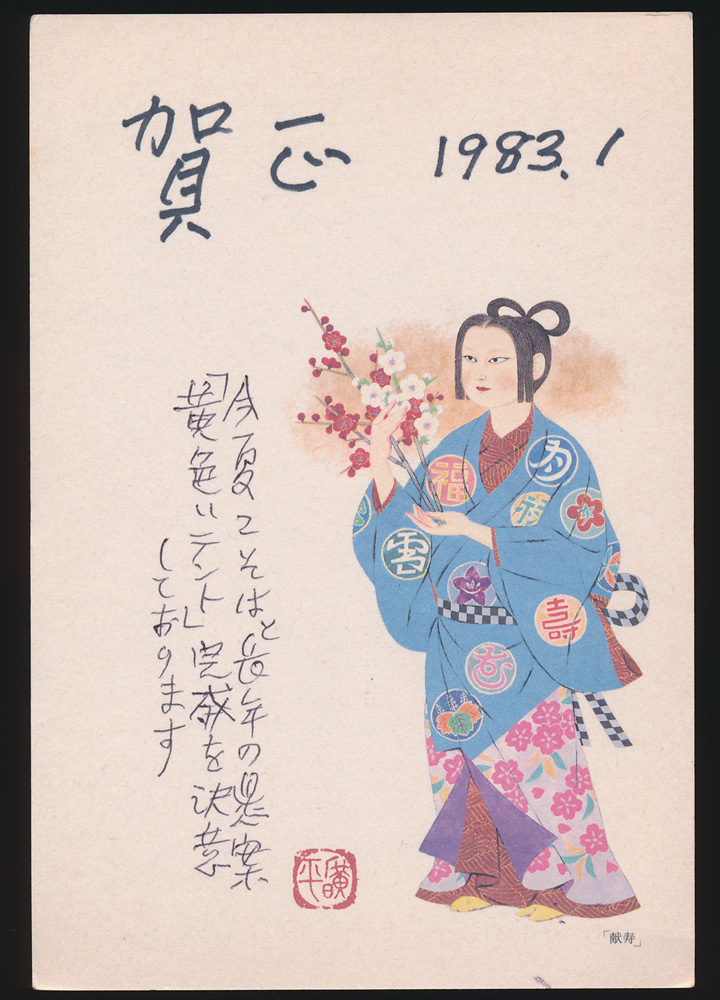 賀正 1983.1
今夏こそはと長年の懸案
「黄色いテント」完成を決意
しております
福
壽
「献寿」